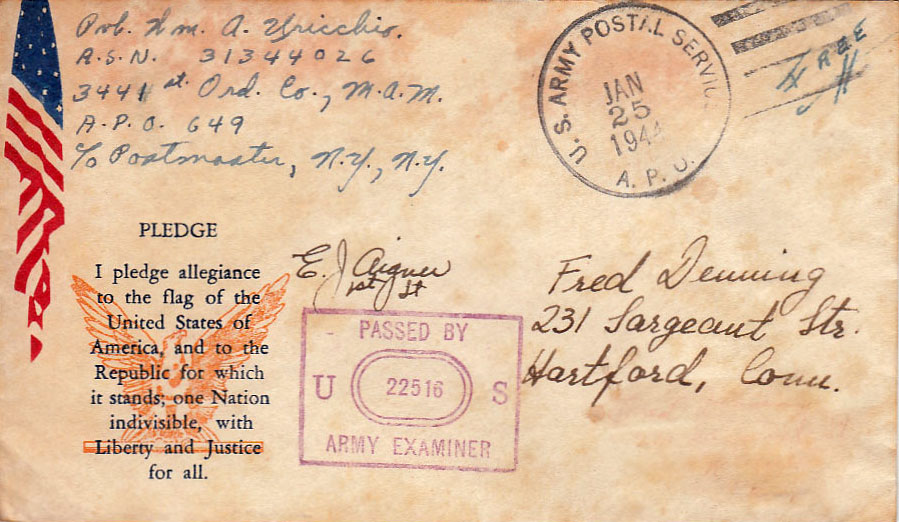 Pvt. Wm. A. Uricchio.
A.S.N. 31344026
3441st Ord. Co., M.A.M.
A.P.O. 649
c/o Postmaster, N.Y., N.Y.
U.S. ARMY POSTAL SERVICE
JAN
25
1944
A. P. O.
FREE
PLEDGE
I pledge allegiance
to the flag of the
United States of
America, and to the
Republic for which
it stands; one Nation
indivisible, with
Liberty and Justice
for all.
E. J. Aigner
1st Lt
PASSED BY
U 22516 S
ARMY EXAMINER
Fred Denning
231 Sargeant Str.
Hartford, Conn.